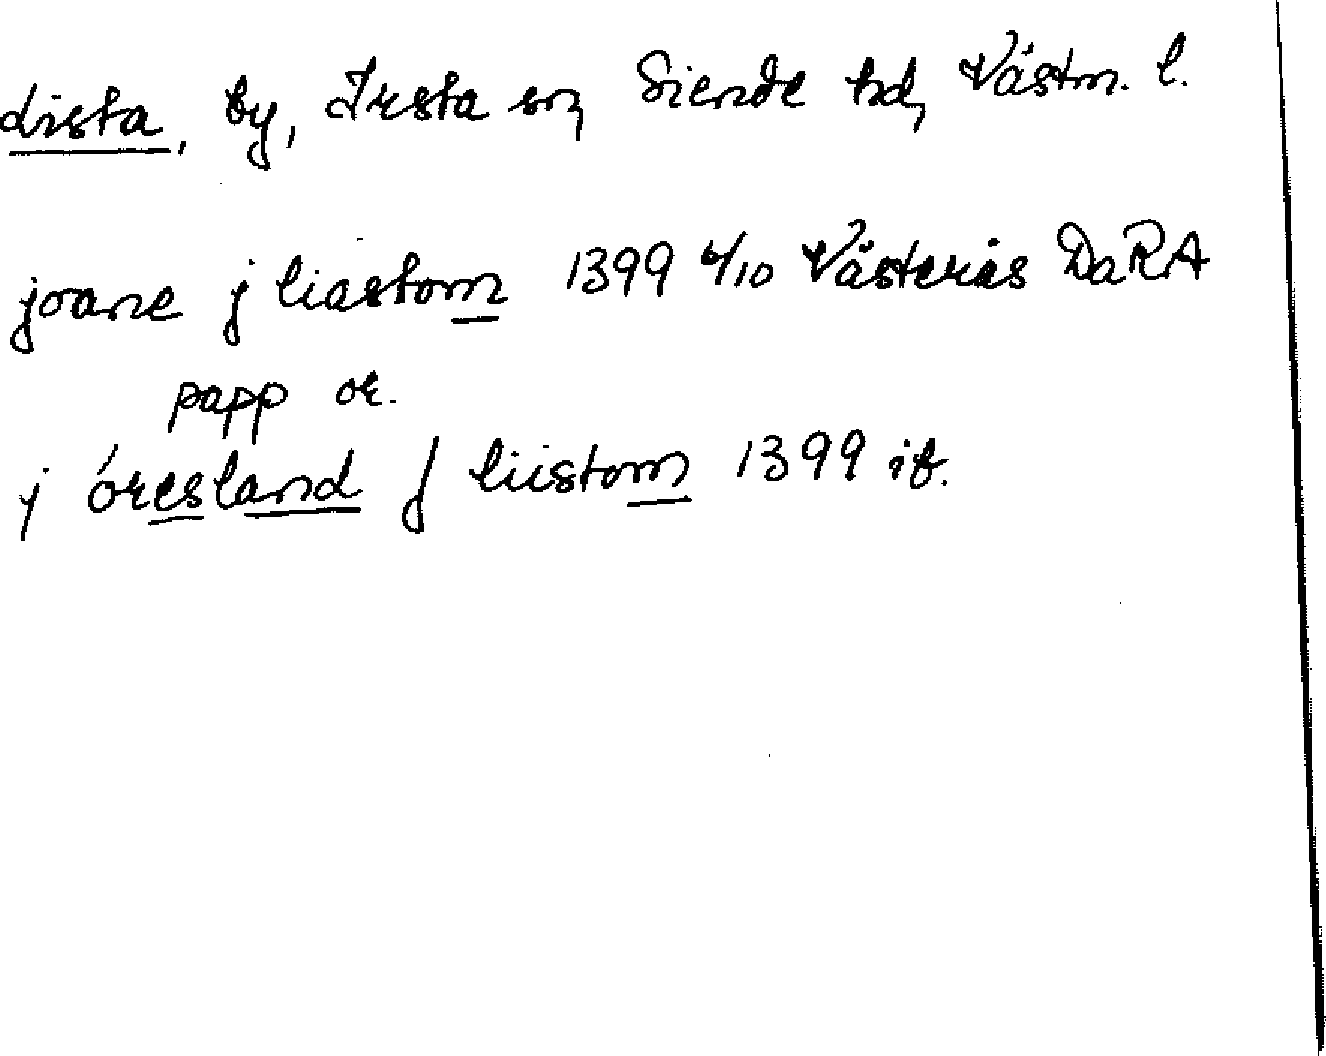 Lista, by, Irsta sn, Siende hd, Västm. l.
joane j liastom 1399 6/10 Västerås DaRA
papp or.
j öresland j liistom 1399 ib.